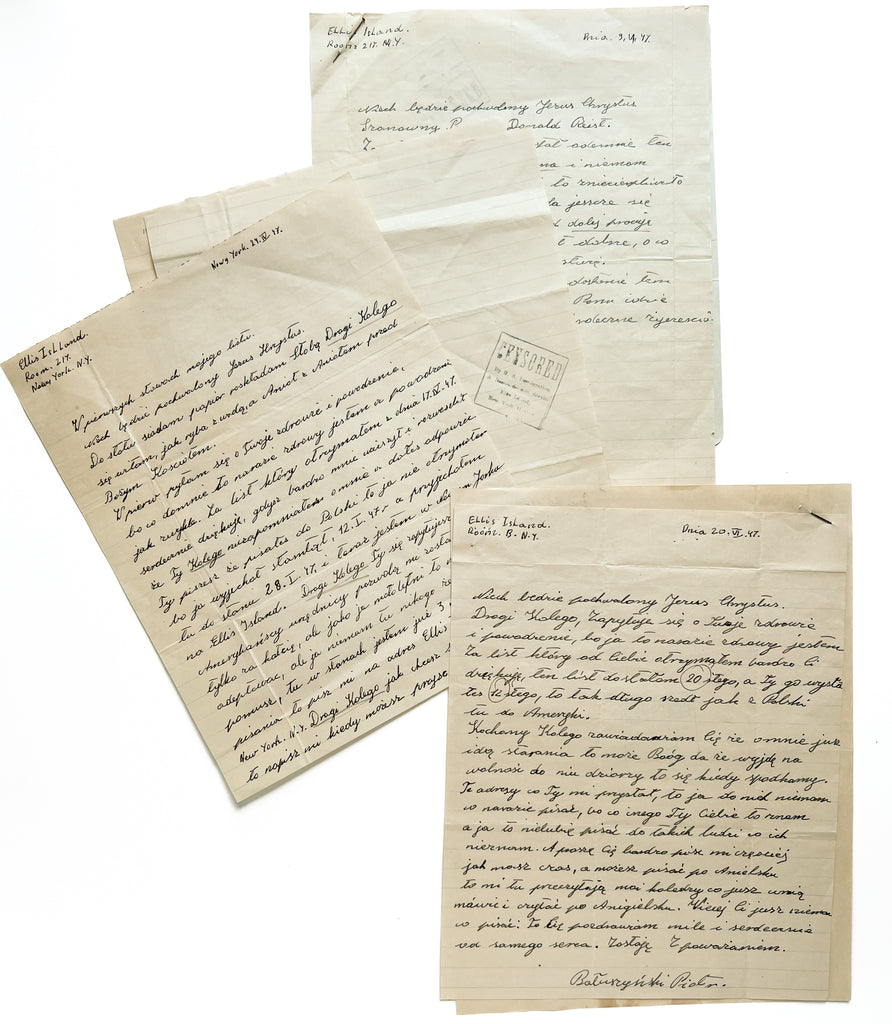 Ellis Island.
Room 217. N.Y.
Dnia. 9. VI. 47.
Niech będzie pochwalony Jezus Chrystus
Szanowny P Donald Reist.
Z
stał odemnie ten
na i niemam
i to zniecierpliwiło
da jeszcze się
dalej pracuje
t dobre, o co
dostanie ten
Panu idzie
CENSORED
Ellis Island,
New York
New York. 24. IV. 47.
Ellis IsLLand.
Room. 217.
New York. N.Y.
W pierwszych słowach mojego listu.
Niech będzie pochwalony Jezus Hrystus.
Do stołu siadam papier rozkładam stobą Drogi Kolego
się witam, jak ryba z wodą, a Anioł z Aniołem pred
Bożym Kościołem.
W pierw pytam się o Twoje zdrowie i powodzenie,
bo co domnie to narazie zdrowy jestem a powodzeni
jak zwykle. Za list który otrzymałem z dnia 17. IV. 47.
serdecznie dziękuje, gdyż bardzo mnie ucieszył i rozweselił
że Ty Kolego niezapomniałeś omnie a dałeś odpowiedź
Ty piszesz że pisałeś do Polski to ja nie otrzymałem
bo ja wyjechał stamtąd, 12. I. 47 r. a przyjechałem
tu do stanu 28. I. 47. i teraz jestem w Nowym Jorku
na Ellis Island. Drogi Kolego Ty się zapytujesz
Amerykańscy urzędnicy pozwolą mi zosta
tylko za kaucją, ale jako ja małoletni to m
adoptować, ale ja niemam tu nikogo
pomusz, tu w stanach jestem już 3
pisania to pisz mi na adres Ellis
New York. N.Y. Drogi Kolego jak chcesz
to napisz mi kiedy możesz
Ellis Island.
Room. B. N.Y.
Dnia 20. VI. 47.
Niech będzie pochwalony Jezus Chrystus.
Drogi Kolego, Zapytuje się o Twoje zdrowie
i powodzenie, bo ja to narazie zdrowy jestem
Za list który od Ciebie otrzymałem bardzo Ci
dziękuje, ten list dostałem 20 stego, a Ty go wysła
łeś 12 stego, to tak długo szedł jak z Polski
tu do Ameryki.
Kochany Kolego zawiadamiam Cię że omnie już
idą starania to może Boóg da że wyjdę na
wolność do nie dziorzy to się kiedy spodkamy.
Te adresy co Ty mi przysłał, to ja do nich niemam
co narazie pisać, bo co innego Ty Ciebie to znam
a ja to nielubię pisać do takich ludzi co ich
nieznam. A proszę Cię bardzo pisz mi częściej
jak masz czas, a możesz pisać po Anielsku
to mi tu przeczytają moi koledzy co jusz umią
mówić i czytać po Anigielsku. Więcej Ci jusz niemam
co pisać. To Cię pozdrawiam mile i serdecznie
od samego serca. Zostaję Z powarzaniem.
Bałuszyński Piotr.